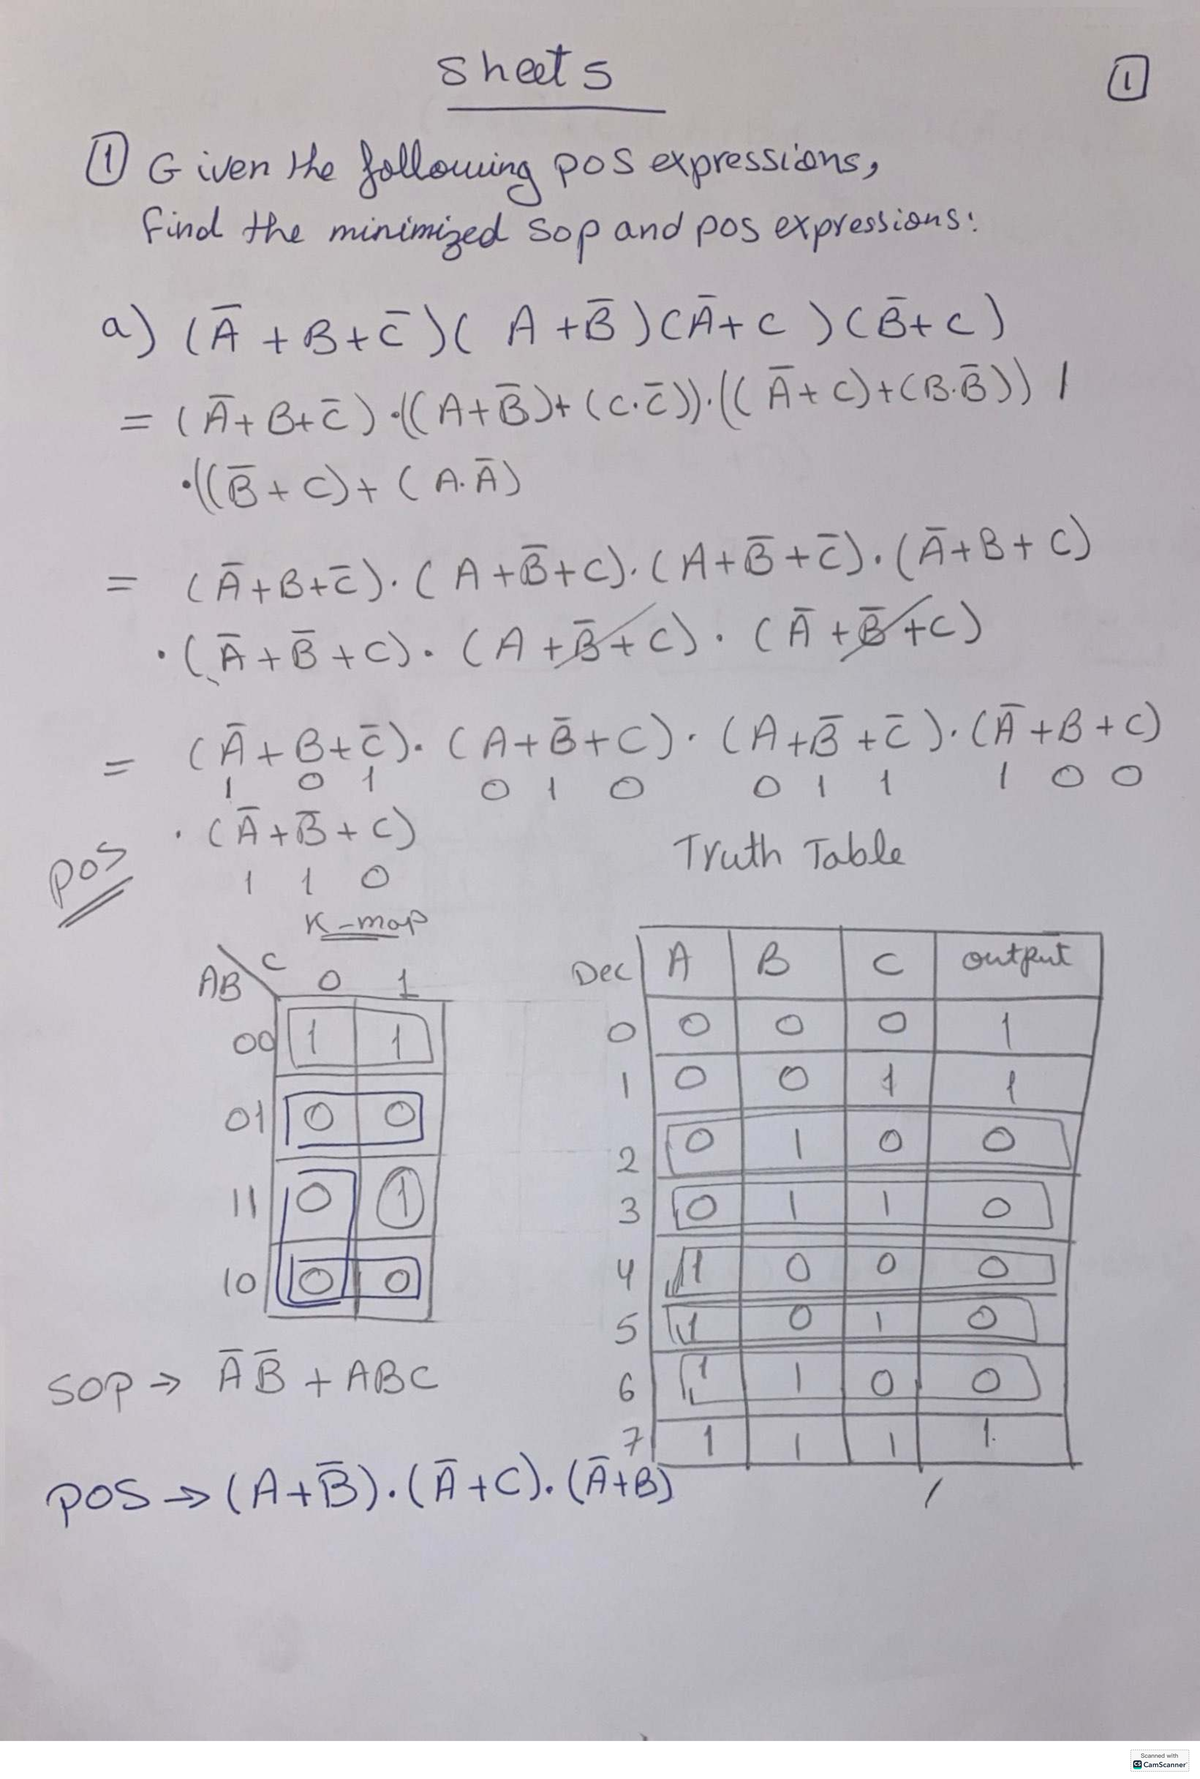 sheet 5
1
1 Given the following pos expressions,
find the minimized sop and pos expressions:
a) (A̅ + B + C̅)( A + B̅ )(A̅ + C )(B̅ + C)
= (A̅ + B + C̅) ·((A + B̅) + (C.C̅)).((A̅ + C) + (B.B̅))
·((B̅ + C) + (A.A̅)
= (A̅ + B + C̅).( A + B̅ + C).(A + B̅ + C̅).(A̅ + B + C)
·(A̅ + B̅ + C). (A + B̅ + C) . (A̅ + B̅ + C)
= (A̅ + B + C̅). (A + B̅ + C) . (A + B̅ + C̅).(A̅ + B + C)
1 0 1 0 1 0 0 1 1 1 0 0
. (A̅ + B̅ + C)
1 1 0
pos
Truth Table
K-map
AB C 0 1
00 1 1
01 0 0
11 0 1
10 0 0
Dec A B C output
0 0 0 0 1
1 0 0 1 1
2 0 1 0 0
3 0 1 1 0
4 1 0 0 0
5 1 0 1 0
6 1 1 0 0
7 1 1 1 1.
SOP → A̅ B̅ + ABC
POS → (A + B̅).(A̅ + C).(A̅ + B)
Scanned with
CS CamScanner